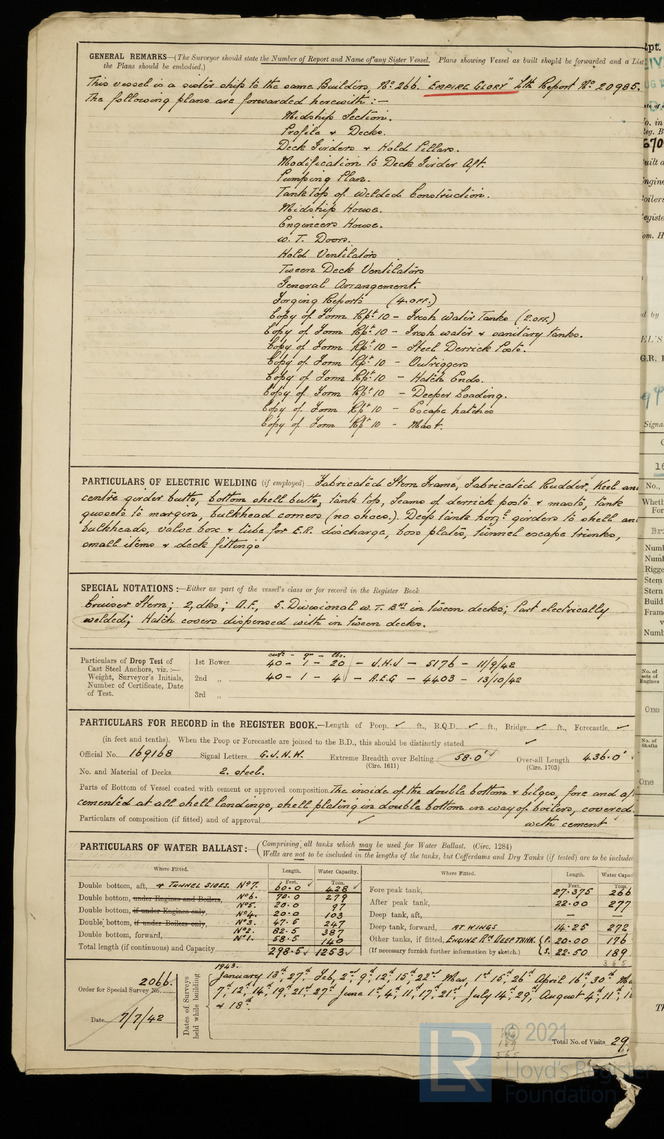 GENERAL REMARKS—(The Surveyor should state the Number of Report and Name of any Sister Vessel. Plans showing Vessel as built should be forwarded and a List
the Plans should be embodied.)
This vessel is a sister ship to the same Builders No 266 "EMPIRE GLORY" Lth Report No 20985.
The following plans are forwarded herewith:—
Midship Section.
Profile & Decks.
Deck Girders & Hold Pillars.
Modification to Deck Girder Aft.
Pumping Plan.
Tank Top of Welded Construction.
Midship House.
Engineers House.
W.T. Doors.
Hold Ventilators
Tween Deck Ventilators
General Arrangement.
Forging Reports (4 off.)
Copy of Form Rpt 10 - Fresh Water Tanks (2 off)
Copy of Form Rpt 10 - Fresh water & sanitary tanks.
Copy of Form Rpt 10 - Steel Derrick Posts.
Copy of Form Rpt 10 - Outriggers
Copy of Form Rpt 10 - Hatch Ends.
Copy of Form Rpt 10 - Deeper Loading.
Copy of Form Rpt 10 - Escape hatches
Copy of Form Rpt 10 - Mast.
PARTICULARS OF ELECTRIC WELDING (if employed) Fabricated Stern Frame, Fabricated Rudder, Keel and
centre girder butts, bottom shell butts, tank top, seams of derrick posts & masts, tank
gussets to margin, bulkhead corners (no shoes). Deep tank horizl girders to shell and
bulkheads, valve box & tube for E.R. discharge, boss plates, tunnel escape trunks,
small items & deck fittings
SPECIAL NOTATIONS:—Either as part of the vessel's class or for record in the Register Book
Cruiser Stern; 2 dks; D.F., 5 Divisional W.T. Bds in tween decks; Part electrically
welded; Hatch covers dispensed with in tween decks.
Particulars of Drop Test of
Cast Steel Anchors, viz.:—
Weight, Surveyor's Initials,
Number of Certificate, Date
of Test.
cwts - qr - lbs.
1st Bower 40 - 1 - 20 - J.H.J - 5176 - 11/9/42
2nd ,, 40 - 1 - 4 - A.E.G - 4403 - 13/10/42
3rd ,,
PARTICULARS FOR RECORD in the REGISTER BOOK.—Length of Poop ✓ ft., R.Q.D. ✓ ft., Bridge ✓ ft., Forecastle ✓
(in feet and tenths). When the Poop or Forecastle are joined to the B.D., this should be distinctly stated ✓
Official No. 169168 Signal Letters G.J.N.W. Extreme Breadth over Belting 58.0' Over-all Length 436.0'
(Circ. 1611) (Circ. 1703)
No. and Material of Decks 2. steel.
Parts of Bottom of Vessel coated with cement or approved composition The inside of the double bottom & bilges, fore and aft
cemented at all shell landings, shell plating in double bottom in way of boilers, covered
Particulars of composition (if fitted) and of approval ✓ with cement
PARTICULARS OF WATER BALLAST:— (Comprising all tanks which may be used for Water Ballast. (Circ. 1284)
Wells are not to be included in the lengths of the tanks, but Cofferdams and Dry Tanks (if tested) are to be included
Where Fitted. Length. Water Capacity. Where Fitted. Length. Water Capacity
Feet. Tons.
Double bottom, aft, & TUNNEL SIDES. No 7. 60.0 428
Double bottom, under Engines and Boilers, No 6. 70.0 279
No 5. 20.0 97
Double bottom, if under Engines only, No 4. 20.0 103
Double bottom, if under Boilers only, No 3. 47.5 247
Double bottom, forward, No 2. 82.5 387
No 1. 58.5 140
Total length (if continuous) and Capacity 298.5 1253
Fore peak tank, 27.375 266
After peak tank, 22.00 277
Deep tank, aft, — —
Deep tank, forward, AT WINGS 14.25 272
Other tanks, if fitted, ENGINE RM DEEP TANK. P. 20.00 176
(If necessary furnish further information by sketch.) S. 22.50 189
365
Order for Special Survey No. 2066.
Date 7/7/42
Dates of Surveys held while building
1943.
January 13th, 27th Feb, 2nd 9th 12th 15th 22nd Mar, 1st 15th 26th April 16th, 30th Ma
7th, 12th, 14th, 19th, 21st, 27th June 1st, 4th, 11th, 17th, 21st, July 14th, 29th, August 4th, 11th, 1
& 18th.
Total No. of Visits 29.
© 2021
Lloyd's Register
Foundation
LR